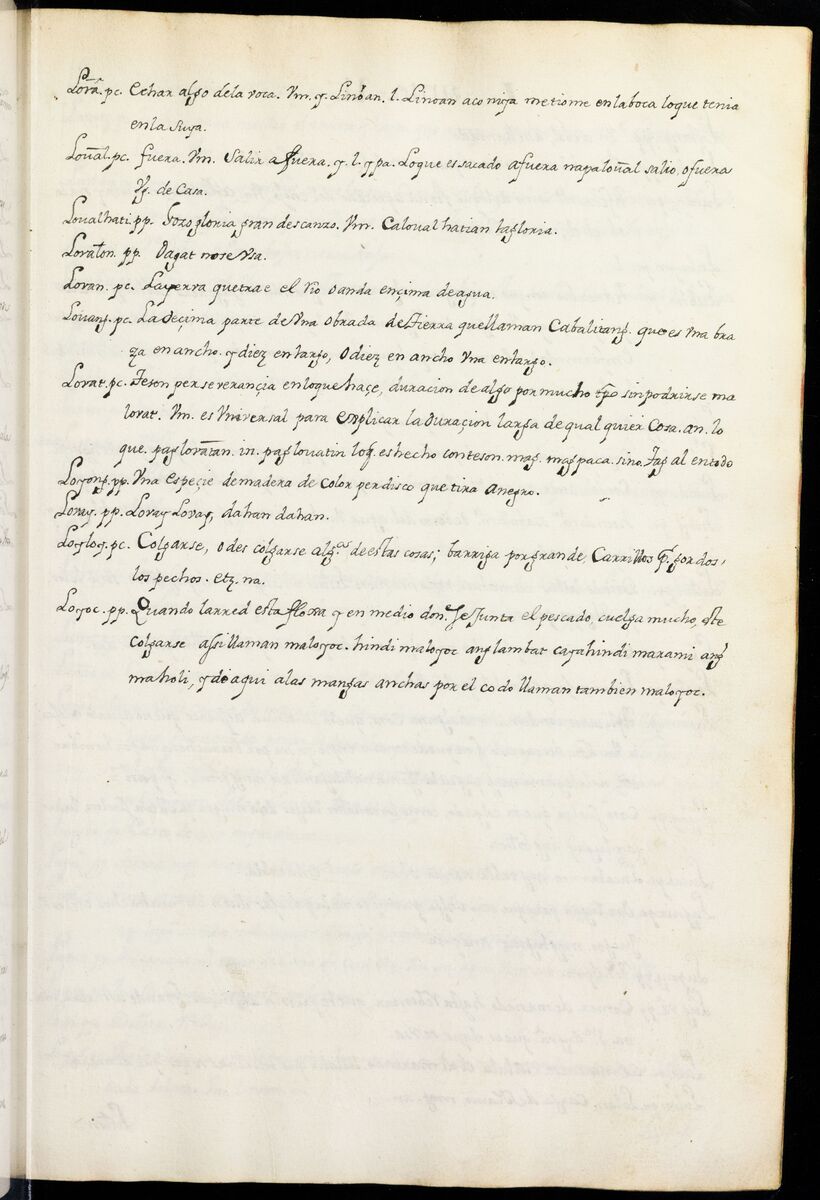 Lova. pc. Echar algo dela voca. Vm. y. Linoan. l. Linoan aco niya metiome en la boca loque tenia
en la suya.
Loval. pc. fuera. Vm. Salir a fuera. y. l. ypa. Loque es sacado a fuera napaloval salio, o fuera
Vg. de Casa.
Loualhati. pp. Gozo gloria gran descanzo. Vm. Caloualhatian la gloria.
Lovaton. pp. Dagat no se Vsa.
Lovan. pc. La yerva que trae el Rio o anda ençima de agua.
Louang. pc. La deçima parte de Vna obrada de tierra que llaman Cabalitang. que es vna bra
za en ancho. y diez en largo, o diez en ancho vna en largo.
Lovat. pc. Teson perseverançia en loque haçe, duracion de algo por mucho tpo sin podrirse ma
lovat. Vm. es Vniversal para explicar la duraçion larga de qual quier Cosa. an. lo
que. paglovatan. in. paglouatin loq. es hecho con teson. mag. magpaca. sino. Tag al en todo
Loyong. pp. Vna Espeçie de madera de color perdisco que tira a negro.
Loray. pp. Loray Loray, dahan dahan.
Loyloy. pc. Colgarse, o des colgarse alg.as de estas cosas; barriga por grande, Carrillos p.r gordos,
los pechos. etz. na.
Loyoc. pp. Quando la rred esta floxa y en medio don.e se Junta el pescado, cuelga mucho, este
colgarse assi llaman maloyoc. hindi maloyoc ang lambat cayahindi marami ang
maholi, y de aqui a las mangas anchas por el codo llaman tambien maloyoc.